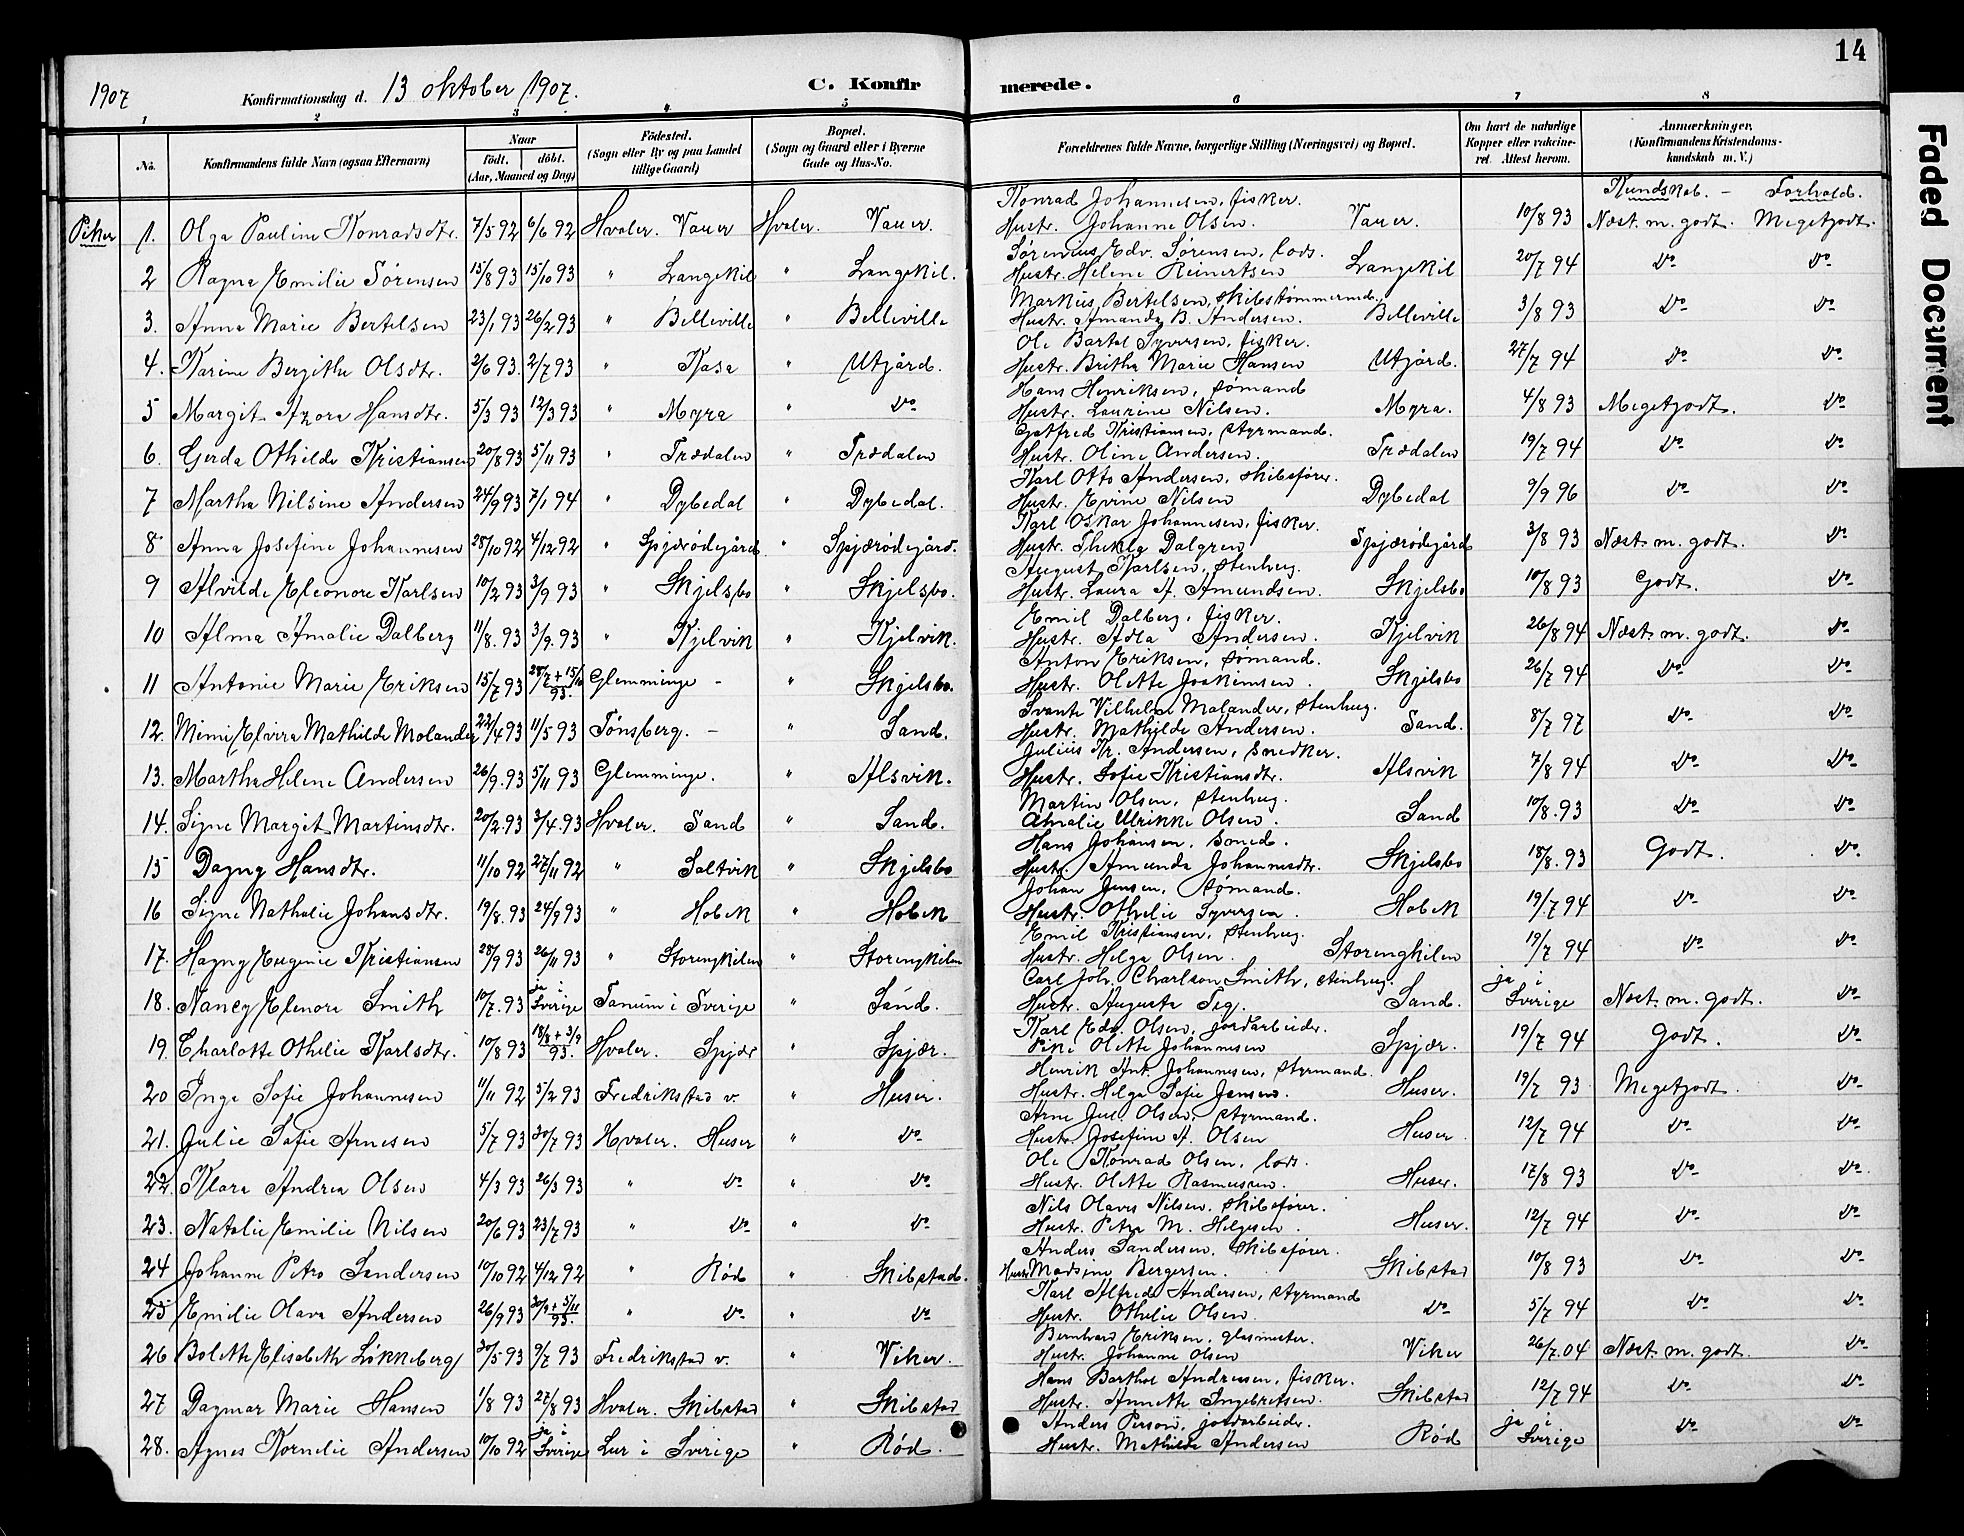 14
1907 Konfirmationsdag d. 13 oktober 1907. C. Konfirmerede.
1 2 3 4 5 6 7 8
No. Konfirmandens fulde Navn (ogsaa Efternavn) Naar født. døbt. (Aar, Maaned og Dag) Fødested. (Sogn eller By og paa Landet tillige Gaard) Bopæl. (Sogn og Gaard eller i Byerne Gade og Hus-No. Forældrenes fulde Navne, borgerlige Stilling (Næringsvei) og Bopæl. Om havt de naturlige Kopper eller vakcineret. Attest herom. Anmærkninger. (Konfirmandens Kristendomskundskab m. V.)
Kundskab. - Forhold.
Piker 1. Olga Pauline Konradsdtr. 7/5 92 6/6 92 Hvaler. Vauer Hvaler. Vauer. Konrad Johannesen, fisker.
Hustr. Johanne Olsen. Vauer. 10/8 93 Næst. m. godt. Megetgodt.
2 Ragna Emilie Sørensen 15/8 93 15/10 93 " Langekil " Langekil. Sørenius Edv. Sørensen, lods.
Hustr. Helene Reinertsen Langekil 20/7 94 Do Do
3. Anna Marie Bertelsen 23/1 93 26/2 93 " Belleville " Belleville Markus Bertelsen, skibstømmermd.
Hustr. Amanda B. Andersen. Belleville 3/8 93 Do Do
4. Karine Bergithe Olsdtr. 2/6 93. 2/7 93 " Kasa " Utgård. Ole Bartel Syversen, fisker.
Hustr. Brithe Marie Hansen Utgård. 27/7 94 Do Do
5 Margit Azora Hansdtr. 5/3 93 12/3 93 " Myra " Do Hans Henriksen, sømand
Hustr. Laurine Nilsen. Myra. 4/8 93 Megetgodt. Do
6. Gerda Othilde Kristiansen 20/8 93 5/11 93 " Trædalen " Trædalen Gotfred Kristiansen, styrmand.
Hustr. Oline Andersen. Trædalen 19/7 94 Do Do
7 Martha Nilsine Andersen 24/9 93 7/1 94 " Dybedal " Dybedal. Karl Otto Andersen, skibsfører.
Hustr. Evine Nilsen Dybedal 9/9 96 Do Do
8 Anna Josefine Johannesen 28/10 92 4/12 92 " Spjærødegård " Spjærødegård. Karl Oskar Johannesen, fisker.
Hustr. Thekla Dalgren Spjærødegård 3/8 93 Næst. m. godt. Do
9 Alvilde Eleonore Karlsen 10/2 93 3/9 93 " Skjelsbo " Skjelsbo. August Karlsen, stenhug.
Hustr. Laura A. Amundsen. Skjelsbo 10/8 93 Godt. Do
10 Alma Amalie Dalberg 11/8. 93 3/9. 93 " Kjelvik " Kjelvik. Emil Dalberg, fisker.
Hustr. Adla Andersen. Kjelvik 26/8 94 Næst. m. godt. Do
11 Antonie Marie Eriksen 15/7 93 28/7 + 15/10 93. Glemminge - " Skjelsbo. Anton Eriksen, sømand.
Hustr. Olette Joakimsen. Skjelsbo 26/7 94 Do Do
12. Mimi Elvira Mathilde Molander 22/4 93 11/5 93 Tønsberg. - " Sand. Svante Vilhelm Malander, stenhug.
Hustr. Mathilde Andersen. Sand. 8/7 97 Do Do
13. Martha Helene Andersen 26/9. 93 5/11 93 Glemminge. " Alsvik. Julius Kr. Andersen, snedker.
Hustr. Sofie Kristiansdtr. Alsvik 7/8 94 Do Do
14. Signe Margit Martinsdtr. 20/2. 93 3/4. 93 Hvaler. Sand " Sand. Martin Olsen, stenhug.
Amalie Ulrikke Olsen. Sand 10/8. 93 Do Do
15 Dagny Hansdtr. 11/10 92 27/11 92 " Saltvik " Skjelsbo Hans Johansen, smed.
Hustr. Amunda Johannesdtr. Skjelsbo 18/8. 93 Godt. Do
16 Signe Nathalie Johansdtr. 19/8. 93 24/9 93 " Hobek " Hobek Johan Jensen, sømand.
Hustr. Othelie Syversen. Hobek 19/7 94 Do Do
17. Hagny Eugenie Kristiansen 28/9 93 26/11 93 " Storengkilen " Storengkilen Emil Kristiansen, stenhug.
Hustr. Helga Olsen. Storengkilen 19/7 94 Do Do
18. Nancy Elenora Smith 10/7. 93 ja i Sverige Tanum i Sverige " Sand. Carl Joh. Charlson Smith, stenhug.
Hustr. Augusta Teg. Sand. ja i Sverige Næst. m. godt. Do
19. Charlotte Othelie Karlsdtr. 10/8 93 18/8 + 3/9 93. Hvaler. Spjær " Spjær. Karl Edv. Olsen, jordarbeider.
Pike Olette Johannesen Spjær. 19/7 94 Godt. Do
20 Inga Sofie Johannesen 11/11 92 5/2 93 Fredrikstad v. " Huser. Henrik Ant. Johannesen, styrmand.
Hustr. Helga Sofie Jensen. Huser. 19/7 93 Megetgodt. Do
21. Julie Sofie Arnesen 5/7 93 30/7 93 Hvaler. Huser " Do Arne Jul. Olsen, styrmand.
Hustr. Josefine A. Olsen Huser. 12/7 94 Do Do
22. Klara Andrea Olsen 4/3 93 26/3 93 " Do " Do Ole Konrad Olsen, lods.
Hustr. Olette Rasmussen. Huser. 17/8 93 Do Do
23. Natalie Emilie Nilsen 20/6 93 23/7 93 " Do " Do Nils Olavus Nilsen, skibsfører.
Hustr. Petra M. Helgesen. Huser. 12/7 94 Do Do
24 Johanne Petra Sandersen 10/10 92 4/12 92 " Rød " Skibstad. Anders Sandersen, skibsfører.
Hustr. Madsine Bergersen. Skibstad 10/8 93 Do Do
25 Emilie Olava Andersen 26/9 93 30/9 + 5/11 93. " Do " Do Karl Alfred Andersen, styrmand
Hustr. Othelie Olsen. Do 5/7 94 Do Do
26 Bolette Elisabeth Løkkeberg 30/5 93 9/7 93 Fredrikstad v. " Viker. Bernhard Eriksen, glasmester.
Hustr. Johanne Olsen Viker 26/7. 04 Næst. m. godt. Do
27 Dagmar Marie Hansen 1/8 93 27/8 93 Hvaler. Skibstad " Skibstad Hans Barthol Andresen, fisker.
Hustr. Annette Ingebretsen. Skibstad 12/7 94 Do Do
28. Agnes Kornelie Andersen 10/10 92 ja i Sverige Lur i Sverige " Rød. Anders Person, jordarbeider.
Hustr. Mathilde Andersen Rød ja i Sverige Do Do
Faded Document